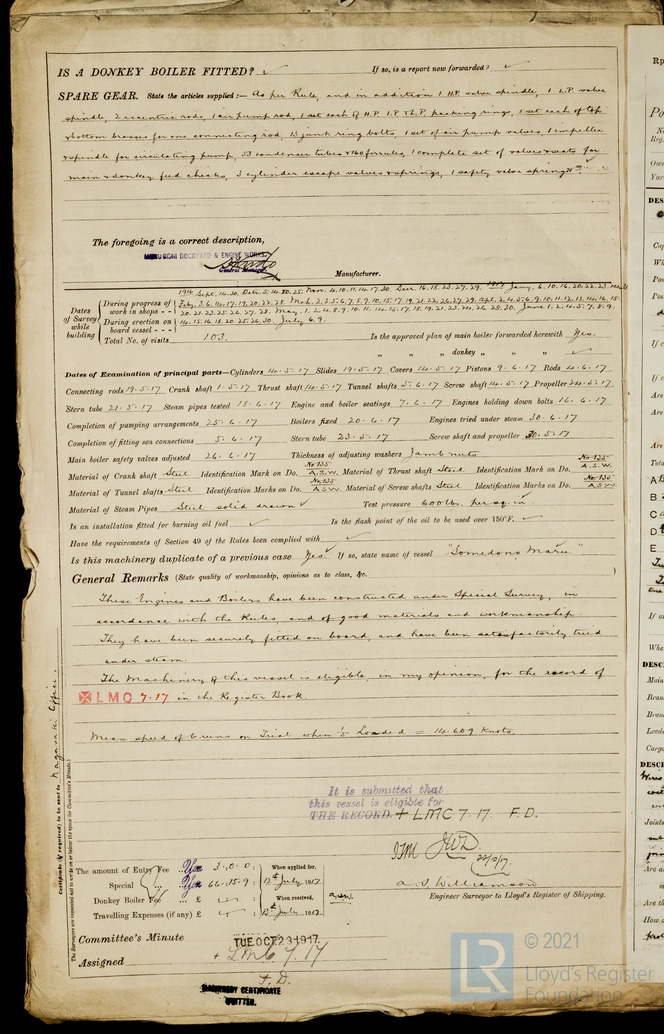 IS A DONKEY BOILER FITTED? ✓ If so, is a report now forwarded? ✓
SPARE GEAR. State the articles supplied:— As per Rule, and in addition 1 H.P. valve spindle, 1 L.P. valve
spindle, 2 eccentric rods, 1 air pump rod, 1 set each of H.P. I.P. & L.P. packing rings, 1 set each of top
& bottom brasses for one connecting rod, 12 junk ring bolts, 1 set of air pump valves, 1 impeller
& spindle for circulating pump, 53 condenser tubes & 160 ferrules, 1 complete set of valves & seats for
main & donkey feed checks, 3 cylinder escape valves & springs, 1 safety valve spring
The foregoing is a correct description,
MITSUBISHI DOCKYARD & ENGINE WORKS,
General Manager Manufacturer.
Dates of Survey while building
During progress of work in shops - - 1916 Sept. 14. 30. Oct. 5. 14. 20. 25. Nov. 4. 10. 11. 14. 17. 30. Dec. 16. 18. 23. 27. 29. 1917 Jany. 6. 10. 16. 20. 22. 23.
Feby. 3. 6. 14. 17. 19. 20. 23. 28. Mch. 2. 3. 5. 6. 7. 8. 9. 10. 15. 17. 19. 21. 22. 26. 27. 29. Apl. 2. 4. 5. 6. 9. 10. 11. 12. 13. 14. 16. 18.
During erection on board vessel - - - 20. 21. 23. 25. 26. 27. 28. May. 1. 2. 4. 8. 9. 10. 11. 14. 15. 17. 18. 19. 21. 23. 24. 26. 28. 30. June 1. 2. 4. 5. 7. 8. 9.
14. 15. 16. 18. 20. 25. 26. 30. July 6. 9.
Total No. of visits 103. Is the approved plan of main boiler forwarded herewith Yes.
" " " donkey " " " ✓
Dates of Examination of principal parts—Cylinders 14.5.17 Slides 19.5.17 Covers 14.5.17 Pistons 9.6.17 Rods 4.6.17
Connecting rods 19.5.17 Crank shaft 1.5.17 Thrust shaft 14.5.17 Tunnel shafts 5.6.17 Screw shaft 14.5.17 Propeller 24.5.17
Stern tube 21.5.17 Steam pipes tested 15.6.17 Engine and boiler seatings 7.6.17 Engines holding down bolts 16.6.17
Completion of pumping arrangements 25.6.17 Boilers fixed 20.6.17 Engines tried under steam 30.6.17
Completion of fitting sea connections 5.6.17 Stern tube 23.5.17 Screw shaft and propeller 30.5.17
Main boiler safety valves adjusted 26.6.17 Thickness of adjusting washers Jamb nuts
Material of Crank shaft Steel Identification Mark on Do. No 135 A.S.W. Material of Thrust shaft Steel Identification Mark on Do. No 135 A.S.W.
Material of Tunnel shafts Steel Identification Marks on Do. No 135 A.S.W. Material of Screw shafts Steel Identification Marks on Do. No 135 A.S.W.
Material of Steam Pipes Steel solid drawn ✓ Test pressure 600 lbs. per sq. in
Is an installation fitted for burning oil fuel ✓ Is the flash point of the oil to be used over 150°F. ✓
Have the requirements of Section 49 of the Rules been complied with ✓
Is this machinery duplicate of a previous case Yes. If so, state name of vessel "Somedono Maru"
General Remarks (State quality of workmanship, opinions as to class, &c. )
These Engines and Boilers have been constructed under Special Survey, in
accordance with the Rules, and of good materials and workmanship.
They have been securely fitted on board, and have been satisfactorily tried
under steam.
The Machinery of this vessel is eligible, in my opinion, for the record of
LMC 7.17 in the Register Book.
Mean speed of 6 runs on Trial when Loaded = 14.609 Knots.
It is submitted that
this vessel is eligible for
THE RECORD. + LMC 7.17. F.D.
22/10/17
Certificate (if required) to be sent to Nagasaki Office.
(The Surveyors are requested not to write on or below the space for Committee's Minute.)
The amount of Entry Fee .. Yen 3.0.0 : When applied for,
Special ... Yen 66.15.9 : 12th July, 1917
Donkey Boiler Fee ... £ : When received,
Travelling Expenses (if any) £ : 13th July, 1917
A. S. Williamson
Engineer Surveyor to Lloyd's Register of Shipping.
Committee's Minute TUE. OCT. 23 1917
Assigned + LMC 7.17
F.D.
MACHINERY CERTIFICATE
WRITTEN.
LR © 2021
Lloyd's Register
Foundation